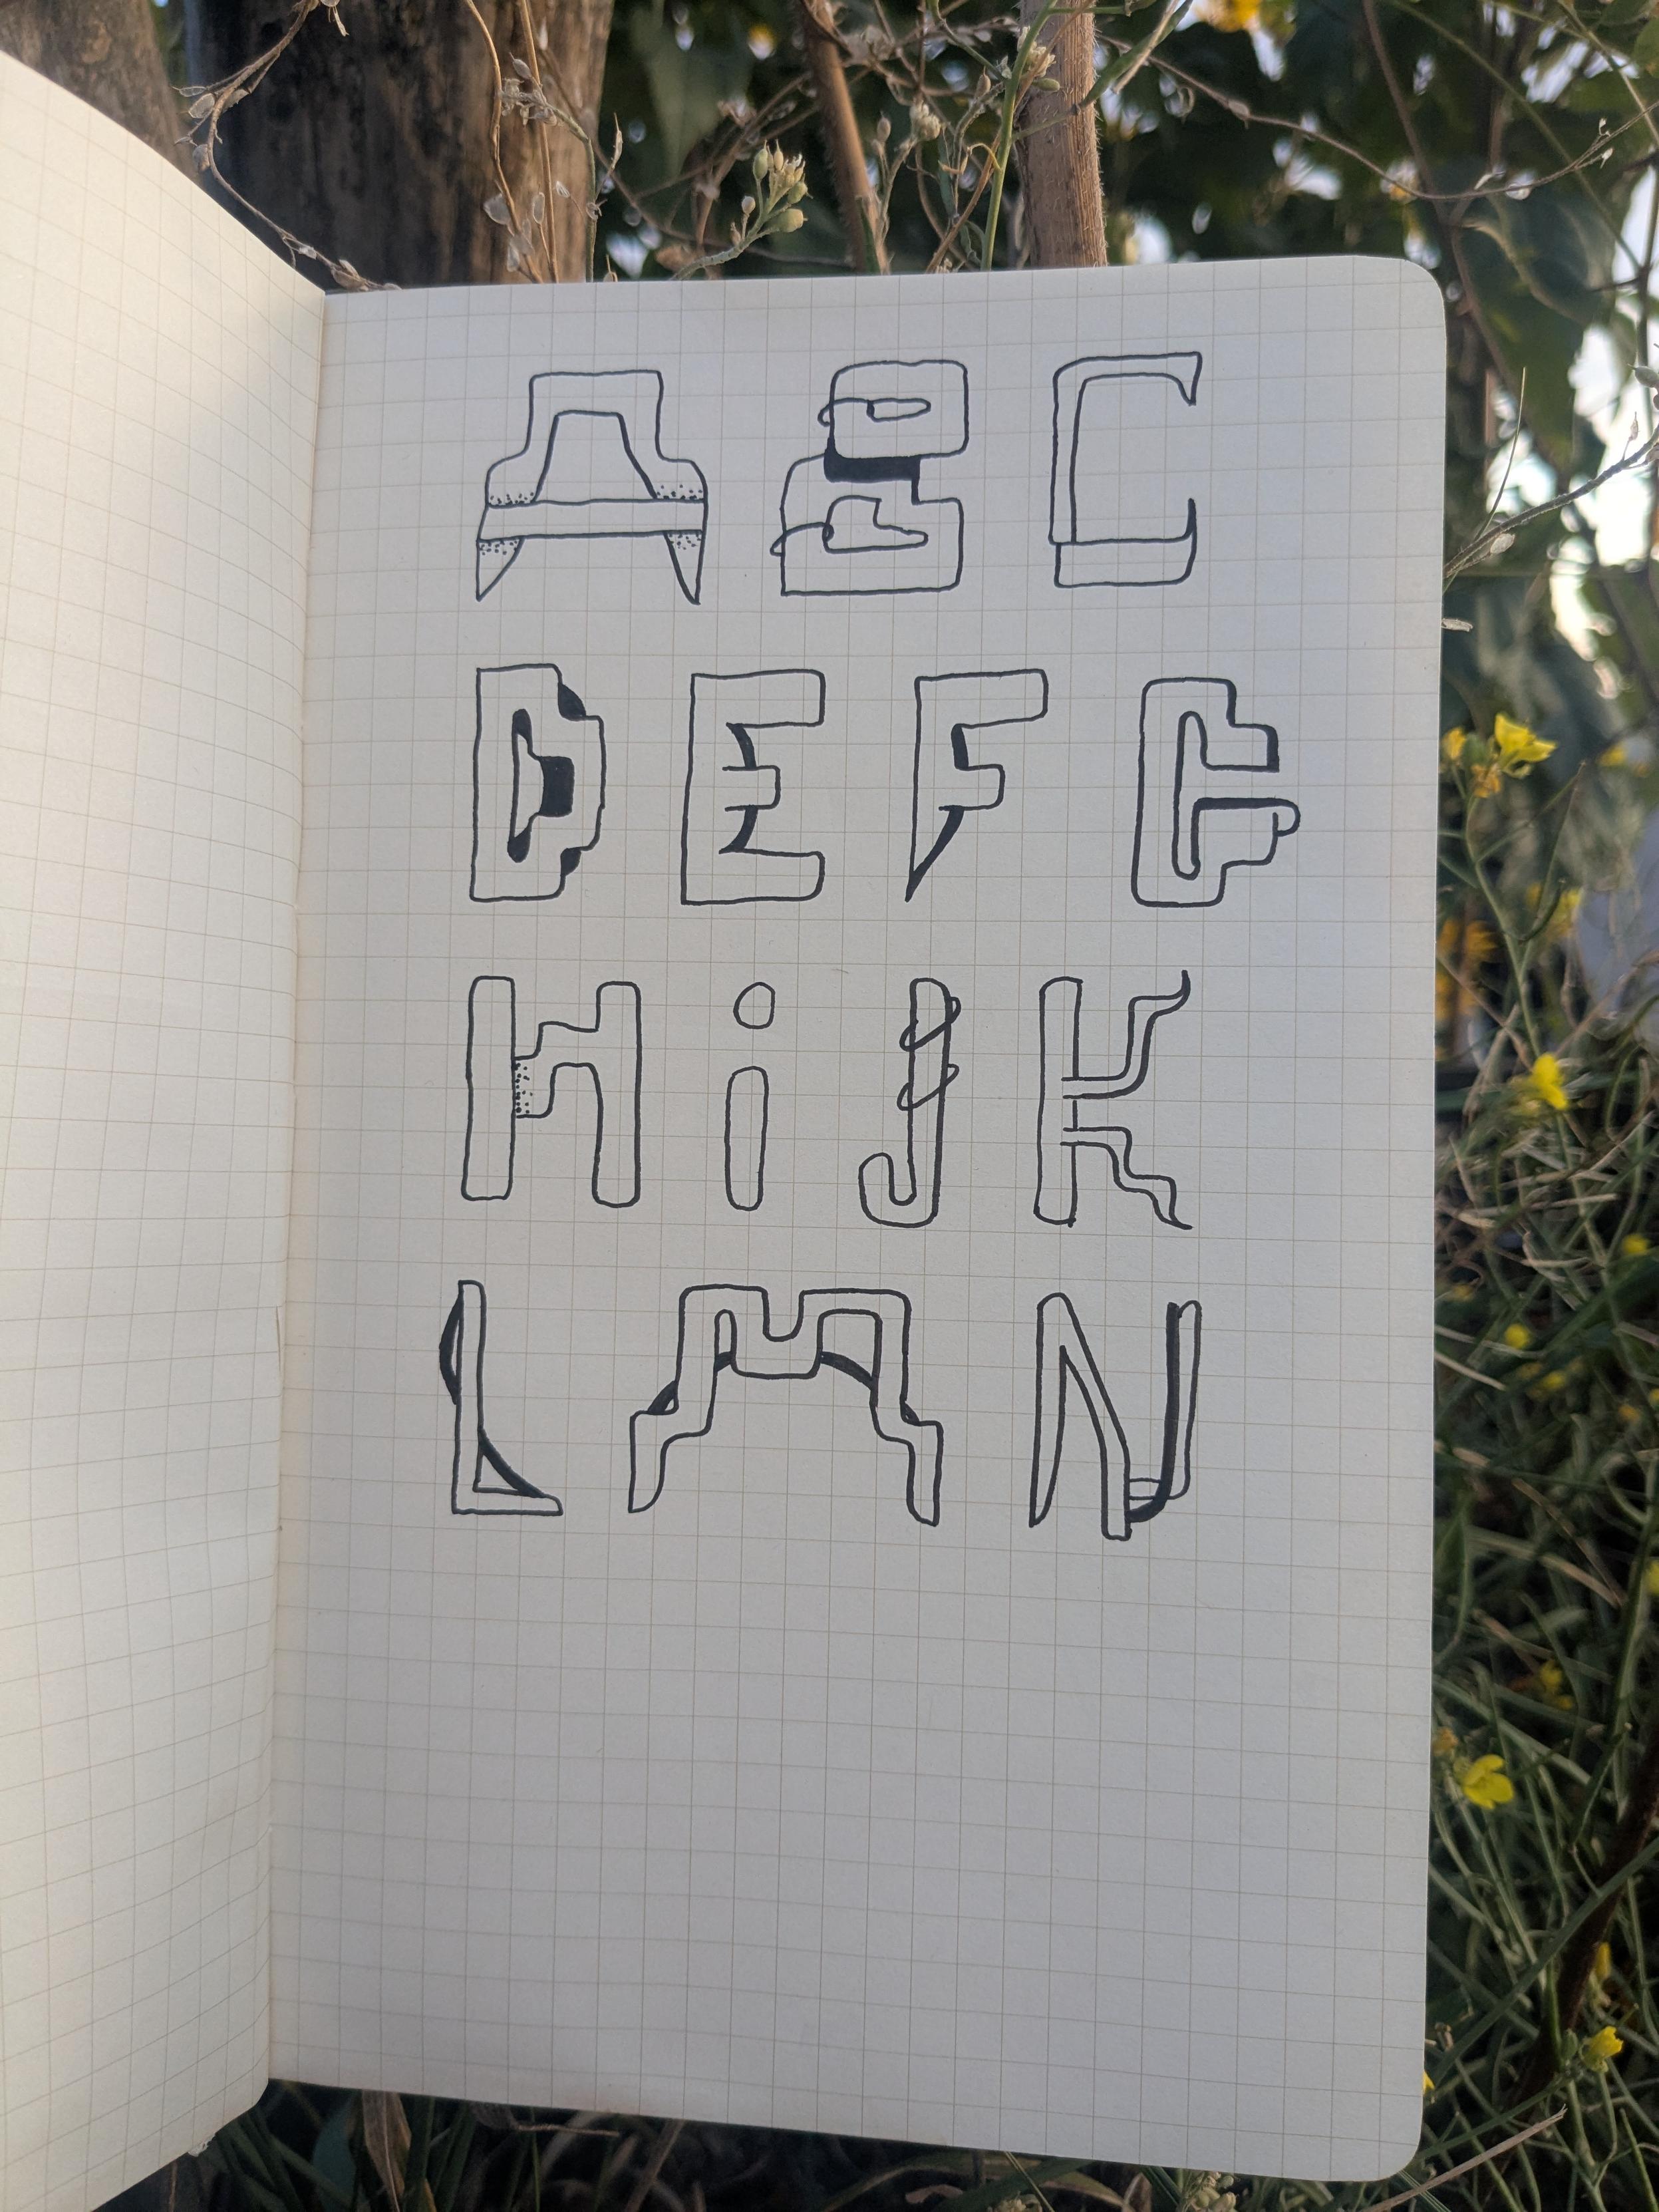 A B C
D E F G
H i J K
L M N